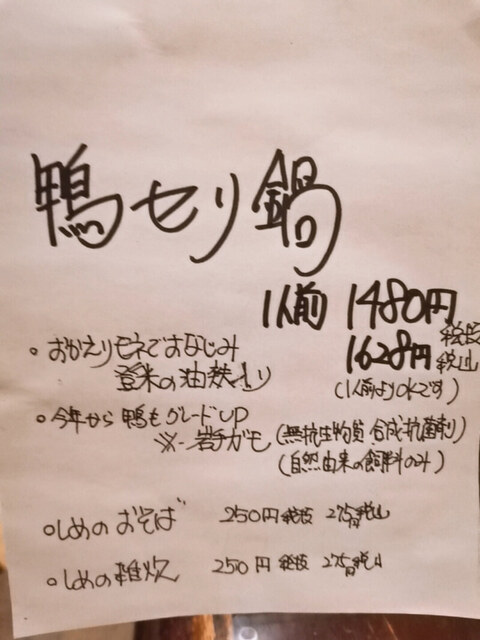 鴨セリ鍋
1人前 1480円 税抜
1628円 税込
(1人前よりOKです)
。おかえりモネでおなじみ
登米の油麸入り
。今年から鴨もグレードUP
※岩手ガモ (無抗生物質 合成抗菌剤)
(自然由来の飼料のみ)
。しめのおそば 250円税抜 275円税込
。しめの雑炊 250円税抜 275円税込